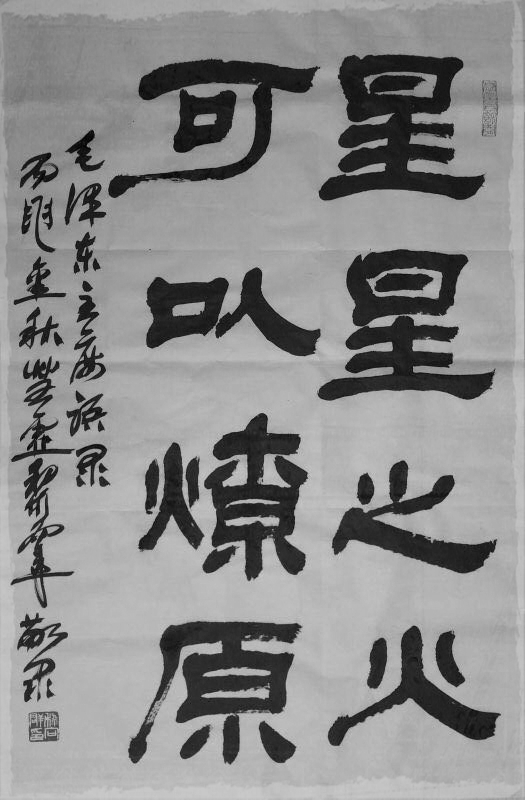 星星之火
可以燎原
毛泽东主席语录
敬录